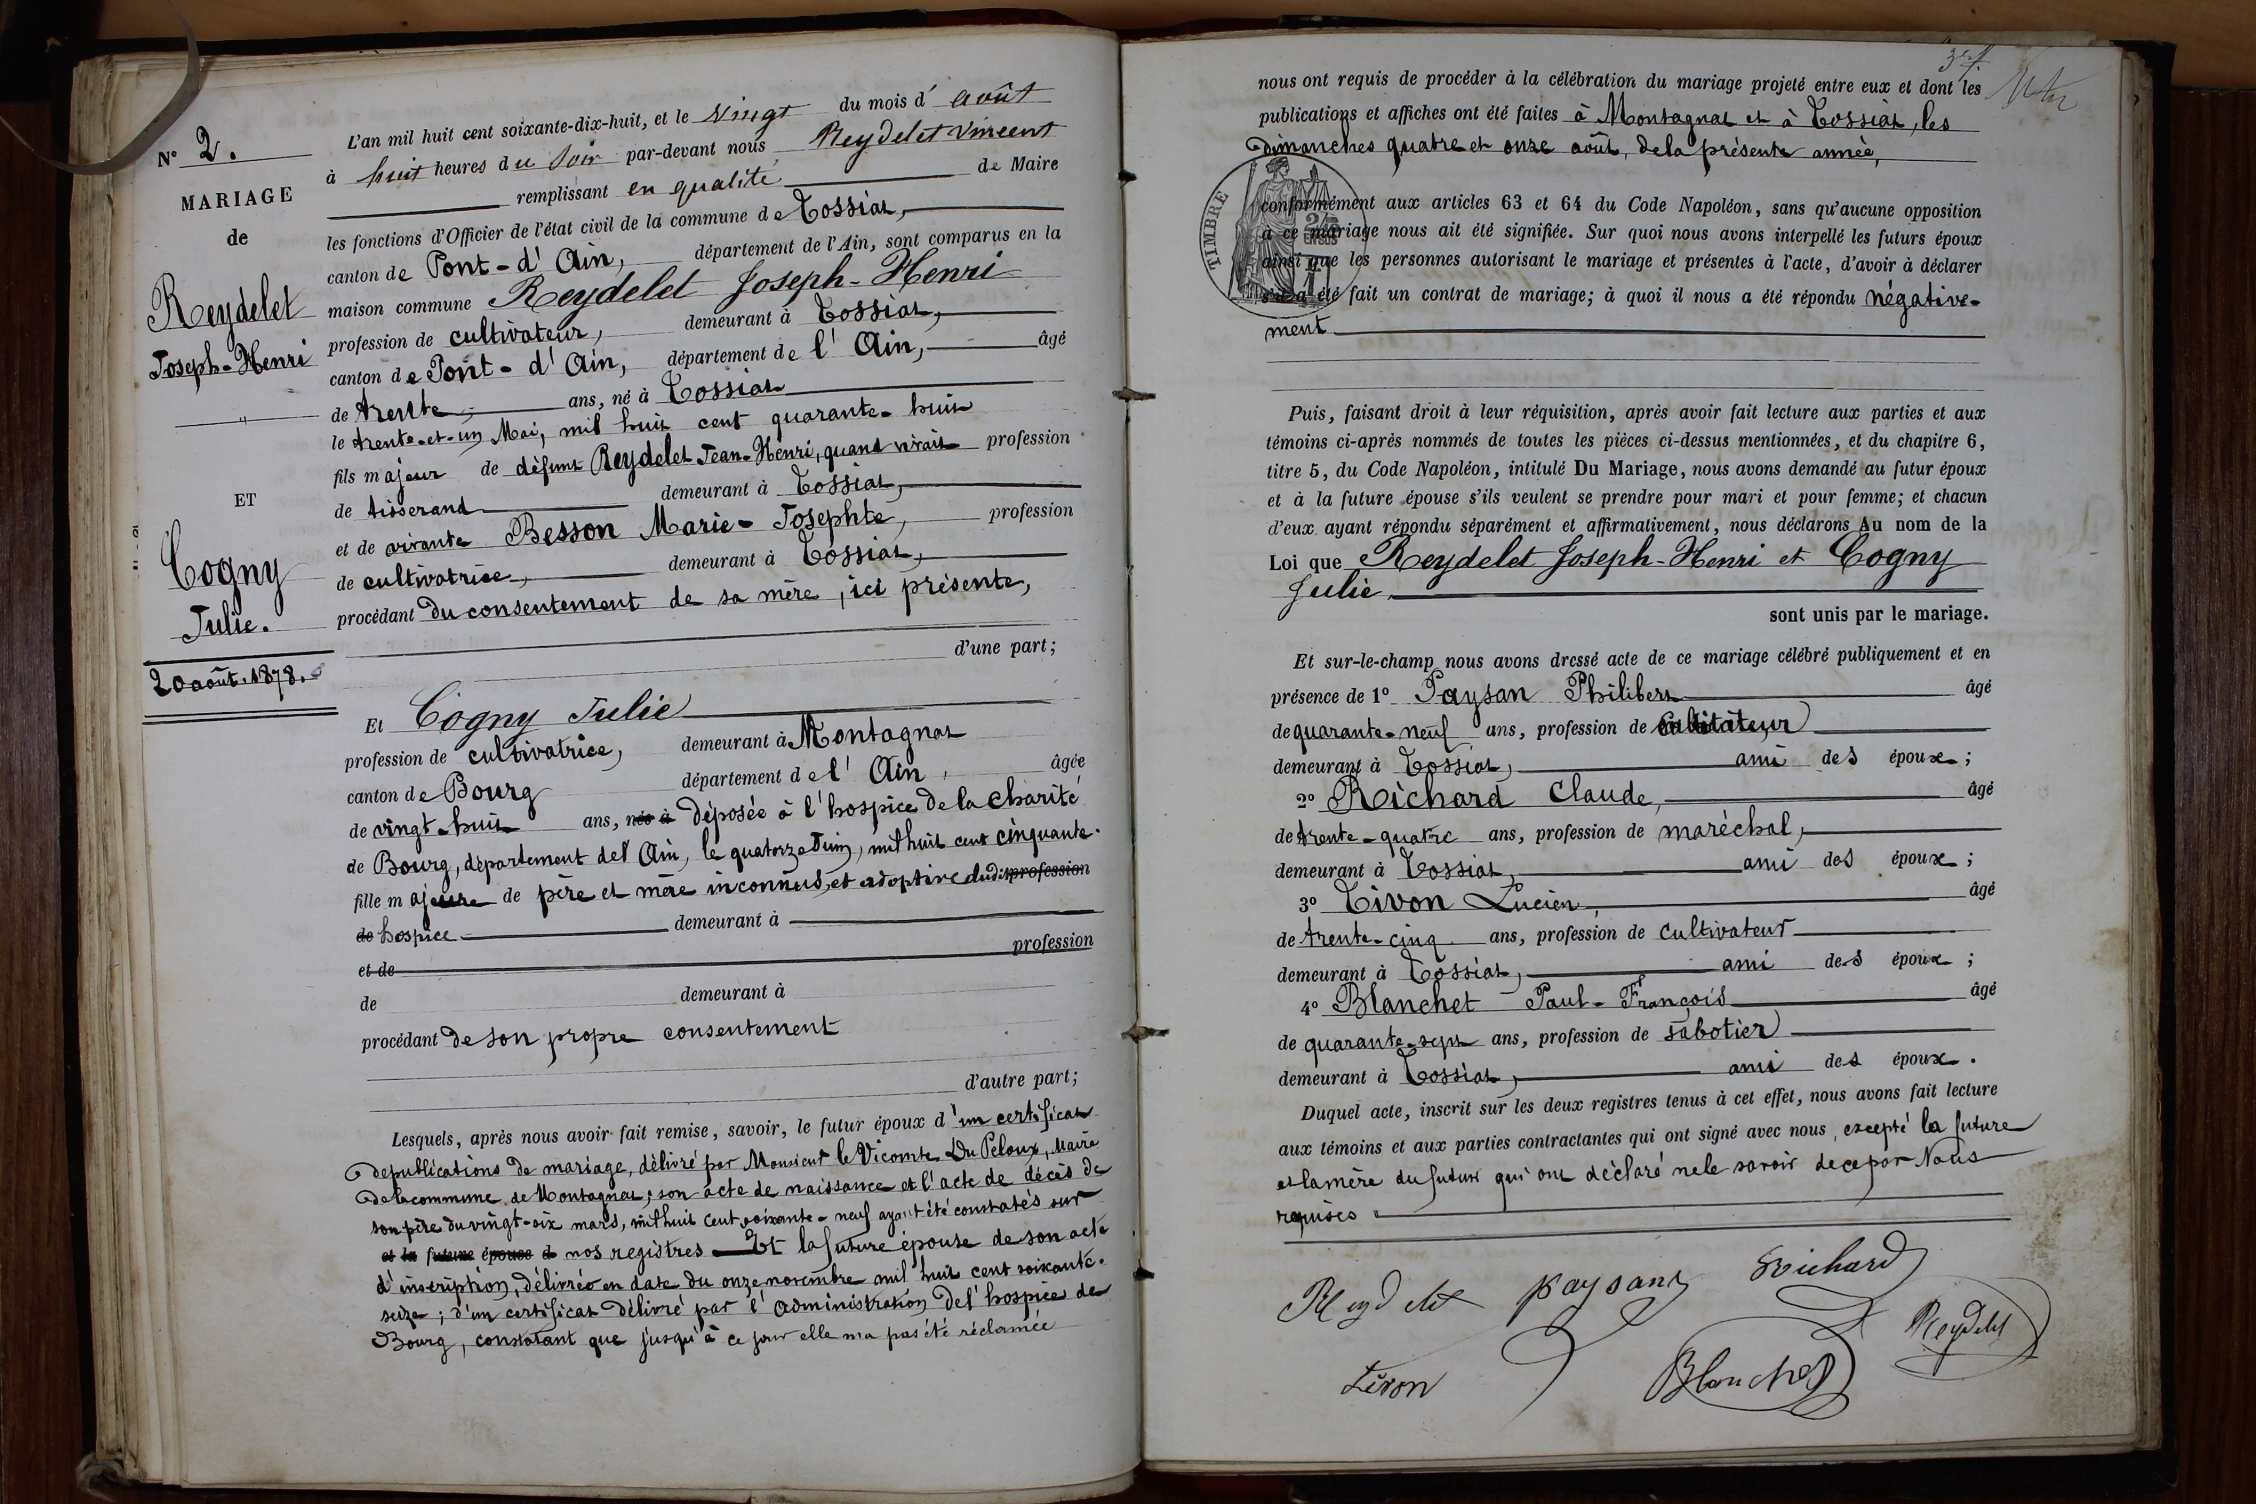 N° 2.
MARIAGE
de
Reydelet
Joseph-Henri
"
ET
Cogny
Julie.
20 août. 1878.
L'an mil huit cent soixante-dix-huit, et le vingt du mois d' août
à huit heures du Soir par-devant nous Reydelet Vincent
remplissant en qualité de Maire
les fonctions d'Officier de l'état civil de la commune de Tossiat,
canton de Pont-d'Ain, département de l'Ain, sont comparus en la
maison commune Reydelet Joseph-Henri
profession de cultivateur, demeurant à Tossiat,
canton de Pont-d'Ain, département de l'Ain, âgé
de trente ans, né à Tossiat
le trente-et-un Mai, mil huit cent quarante-huit
fils majeur de défunt Reydelet Jean-Henri, quand vivait profession
de tisserand demeurant à Tossiat,
et de vivante Besson Marie-Josephte, profession
de cultivatrice, demeurant à Tossiat,
procédant du consentement de sa mère, ici présente,
d'une part;
Et Cogny Julie
profession de cultivatrice, demeurant à Montagnat
canton de Bourg département de l'Ain, âgée
de vingt-huit ans, née à déposée à l'hospice de la charité
de Bourg, département de l'Ain, le quatorze Juin, mil huit cent cinquante.
fille majeure de père et mère inconnus, et adoptive dudit profession
de hospice demeurant à
et de profession
de demeurant à
procédant de son propre consentement
d'autre part;
Lesquels, après nous avoir fait remise, savoir, le futur époux d'un certificat
de publications de mariage, délivré par Monsieur le Vicomte Du Peloux, Maire
de la commune de Montagnat, son acte de naissance et l'acte de décès de
son père du vingt-six mars, mil huit cent soixante-neuf ayant été constatés sur
et la future épouse d nos registres Et la future épouse de son acte
d'inscription, délivrée en date du onze novembre mil huit cent soixante-
seize; d'un certificat délivré par l'administration de l'hospice de
Bourg, constatant que jusqu'à ce jour elle n'a pas été réclamée
nous ont requis de procéder à la célébration du mariage projeté entre eux et dont les
publications et affiches ont été faites à Montagnat et à Tossiat, les
dimanches quatre et onze août, de la présente année,
TIMBRE
conformément aux articles 63 et 64 du Code Napoléon, sans qu'aucune opposition
à ce mariage nous ait été signifiée. Sur quoi nous avons interpellé les futurs époux
ainsi que les personnes autorisant le mariage et présentes à l'acte, d'avoir à déclarer
s'il a été fait un contrat de mariage; à quoi il nous a été répondu négative-
ment
Puis, faisant droit à leur réquisition, après avoir fait lecture aux parties et aux
témoins ci-après nommés de toutes les pièces ci-dessus mentionnées, et du chapitre 6,
titre 5, du Code Napoléon, intitulé Du Mariage, nous avons demandé au futur époux
et à la future épouse s'ils veulent se prendre pour mari et pour femme; et chacun
d'eux ayant répondu séparément et affirmativement, nous déclarons Au nom de la
Loi que Reydelet Joseph-Henri et Cogny
Julie
sont unis par le mariage.
Et sur-le-champ nous avons dressé acte de ce mariage célébré publiquement et en
présence de 1° Paysan Philibert âgé
de quarante-neuf ans, profession de cultivateur
demeurant à Tossiat, ami des époux;
2° Richard Claude, âgé
de trente-quatre ans, profession de maréchal,
demeurant à Tossiat, ami des époux;
3° Tivon Lucien, âgé
de trente-cinq ans, profession de cultivateur
demeurant à Tossiat, ami des époux;
4° Blanchet Paul-François âgé
de quarante-sept ans, profession de sabotier
demeurant à Tossiat, ami des époux.
Duquel acte, inscrit sur les deux registres tenus à cet effet, nous avons fait lecture
aux témoins et aux parties contractantes qui ont signé avec nous, excepté la future
et la mère du futur qui ont déclaré ne le savoir de ce par Nous
requises
Reydelet Paysant Richard
Reydelet
Tivon Blanchet